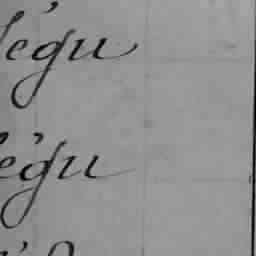 légu
légu